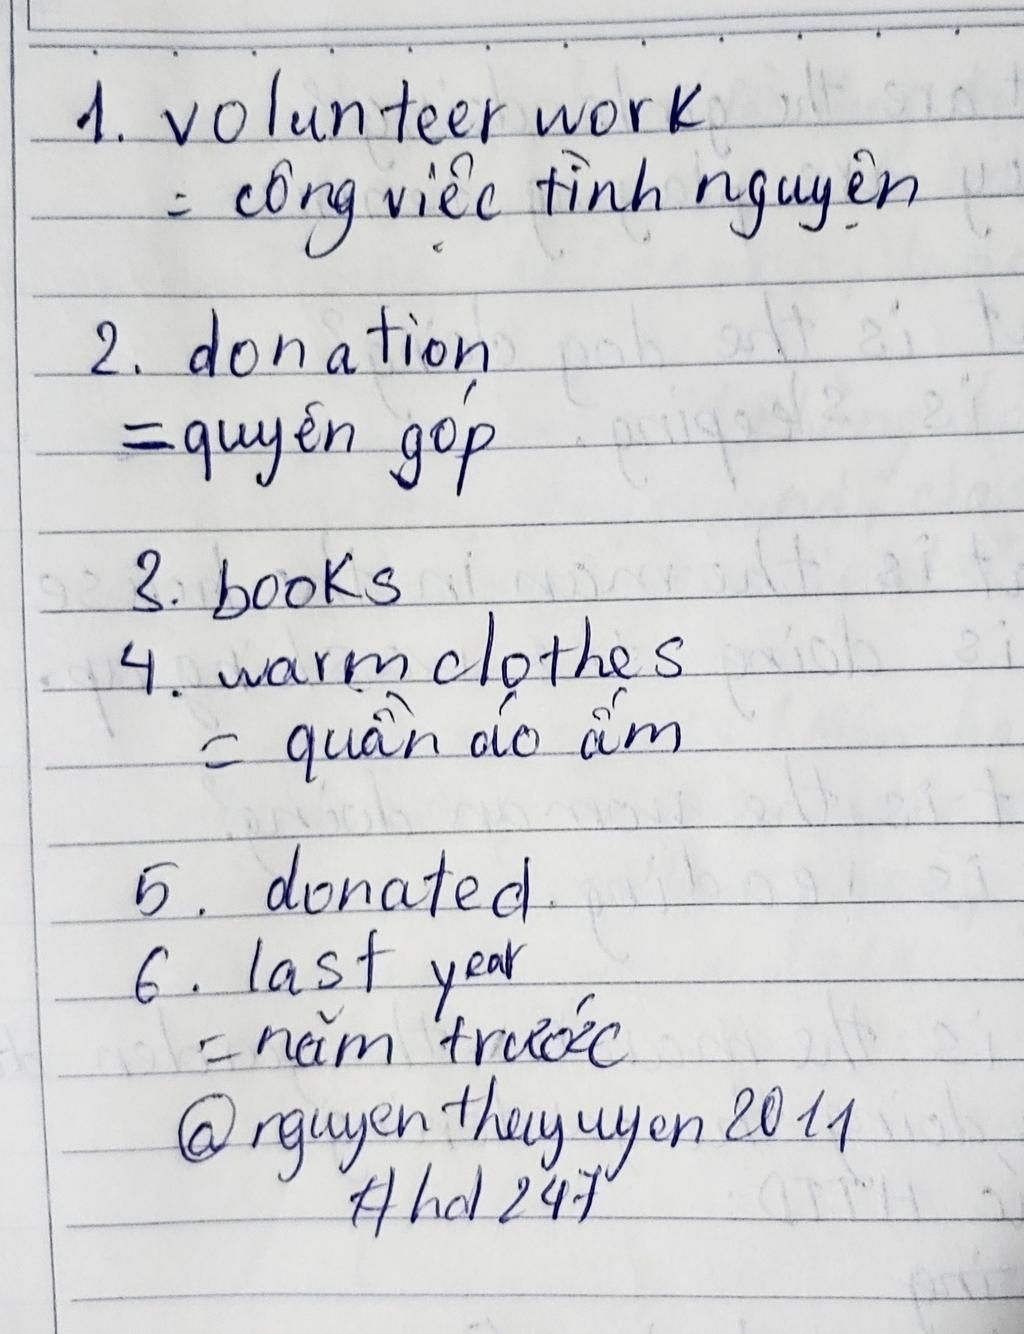 1. volunteer work
= công việc tình nguyện
2. donation
= quyên góp
3. books
4. warm clothes
= quần áo ấm
5. donated.
6. last year
= năm trước
@nguyenthuyuyen2011
#hd247